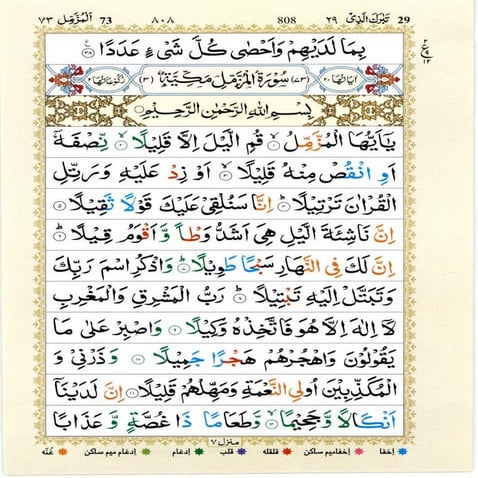 29 تَبٰرَكَ الَّذِیْ ٢٩ 808 ٨٠٨ 73 اَلْمُزَّمِّل ٧٣
بِمَا لَدَیْهِمْ وَاَحْصٰی كُلَّ شَیْءٍ عَدَدًا ۝٢٨
اٰیَاتُهَا ٢٠ (٧٣) سُوْرَةُ الْمُزَّمِّلِ مَكِّیَّةٌ (٣) رُكُوْعَاتُهَا ٢
بِسْمِ اللّٰهِ الرَّحْمٰنِ الرَّحِیْمِ
یٰۤاَیُّهَا الْمُزَّمِّلُ ۝١ قُمِ الَّیْلَ اِلَّا قَلِیْلًا ۝٢ نِّصْفَهٗۤ
اَوِ انْقُصْ مِنْهُ قَلِیْلًا ۝٣ اَوْ زِدْ عَلَیْهِ وَ رَتِّلِ
الْقُرْاٰنَ تَرْتِیْلًا ۝٤ اِنَّا سَنُلْقِیْ عَلَیْكَ قَوْلًا ثَقِیْلًا ۝٥
اِنَّ نَاشِئَةَ الَّیْلِ هِیَ اَشَدُّ وَطْاً وَّ اَقْوَمُ قِیْلًا ۝٦
اِنَّ لَكَ فِی النَّهَارِ سَبْحًا طَوِیْلًا ۝٧ وَاذْكُرِ اسْمَ رَبِّكَ
وَ تَبَتَّلْ اِلَیْهِ تَبْتِیْلًا ۝٨ رَبُّ الْمَشْرِقِ وَ الْمَغْرِبِ
لَاۤ اِلٰهَ اِلَّا هُوَ فَاتَّخِذْهُ وَكِیْلًا ۝٩ وَاصْبِرْ عَلٰی مَا
یَقُوْلُوْنَ وَاهْجُرْهُمْ هَجْرًا جَمِیْلًا ۝١٠ وَ ذَرْنِیْ وَ
الْمُكَذِّبِیْنَ اُولِی النَّعْمَةِ وَمَهِّلْهُمْ قَلِیْلًا ۝١١ اِنَّ لَدَیْنَاۤ
اَنْكَالًا وَّ جَحِیْمًا ۝١٢ وَّطَعَامًا ذَا غُصَّةٍ وَّ عَذَابًا
منزل ٧
اخفا اخفامیم ساکن قلقله قلب ادغام ادغام میم ساکن غُنّه